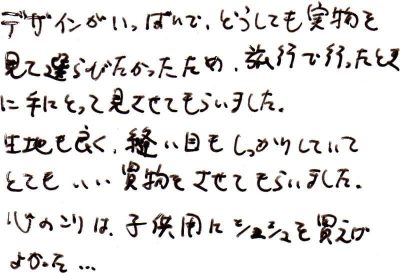 デザインがいっぱいで、どうしても実物を
見て選らびたかったため、旅行で行ったとき
に手にとって見させてもらいました。
生地も良く、縫い目もしっかりしていて
とてもいい買物をさせてもらいました。
心のこりは、子供用にシュシュを買えば
よかった…